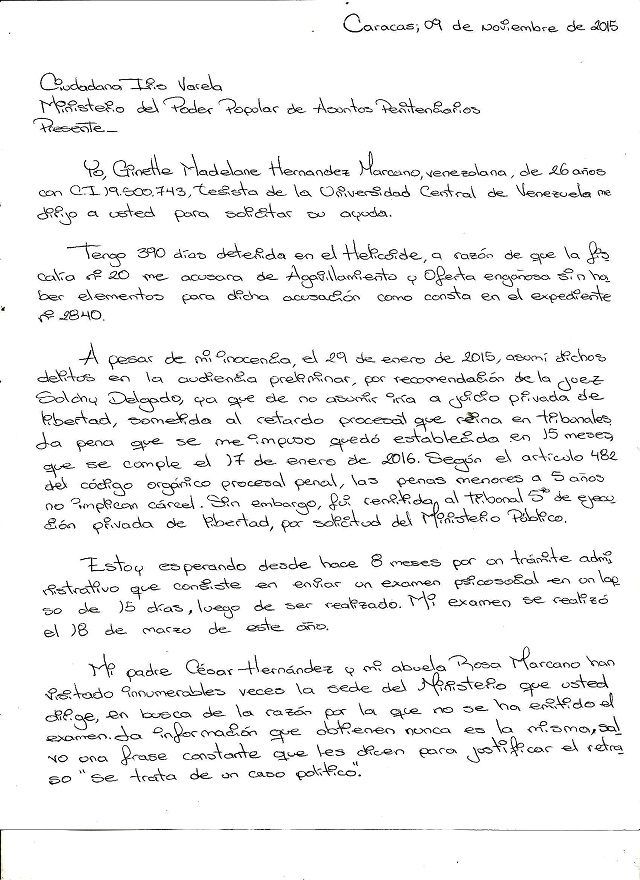 Caracas, 09 de Noviembre de 2015
Ciudadana Iris Varela
Ministerio del Poder Popular de Asuntos Penitenciarios
Presente_
Yo, Ginette Madelane Hernandez Marcano, venezolana, de 26 años
con C.I 19.500.743, tesista de la Universidad Central de Venezuela me
dirijo a usted para solicitar su ayuda.
Tengo 390 días detenida en el Helicoide, a razón de que la fis
calia nº 20 me acusara de Agavillamiento y Oferta engañosa sin ha
ber elementos para dicha acusación como consta en el expediente
nº 2840.
A pesar de mi inocencia, el 29 de enero de 2015, asumí dichos
delitos en la audiencia preliminar, por recomendación de la juez
Solchy Delgado, ya que de no asumir iría a juicio privada de
libertad, sometida al retardo procesal que reina en tribunales.
La pena que se me impuso quedó establecida en 15 meses,
que se cumple el 17 de enero de 2016. Según el articulo 482
del código orgánico procesal penal, las penas menores a 5 años
no implican cárcel. Sin embargo, fui remitida al tribunal 5to de ejecu
ción privada de libertad, por solicitud del Ministerio Público.
Estoy esperando desde hace 8 meses por un trámite admi
nistrativo que consiste en enviar un examen psicosocial en un lap
so de 15 días, luego de ser realizado. Mi examen se realizó
el 18 de marzo de este año.
Mi padre César Hernández y mi abuela Rosa Marcano han
visitado innumerables veces la sede del Ministerio que usted
dirige, en busca de la razón por la que no se ha emitido el
examen. La información que obtienen nunca es la misma, sal
vo una frase constante que les dicen para justificar el retra
so "se trata de un caso político".